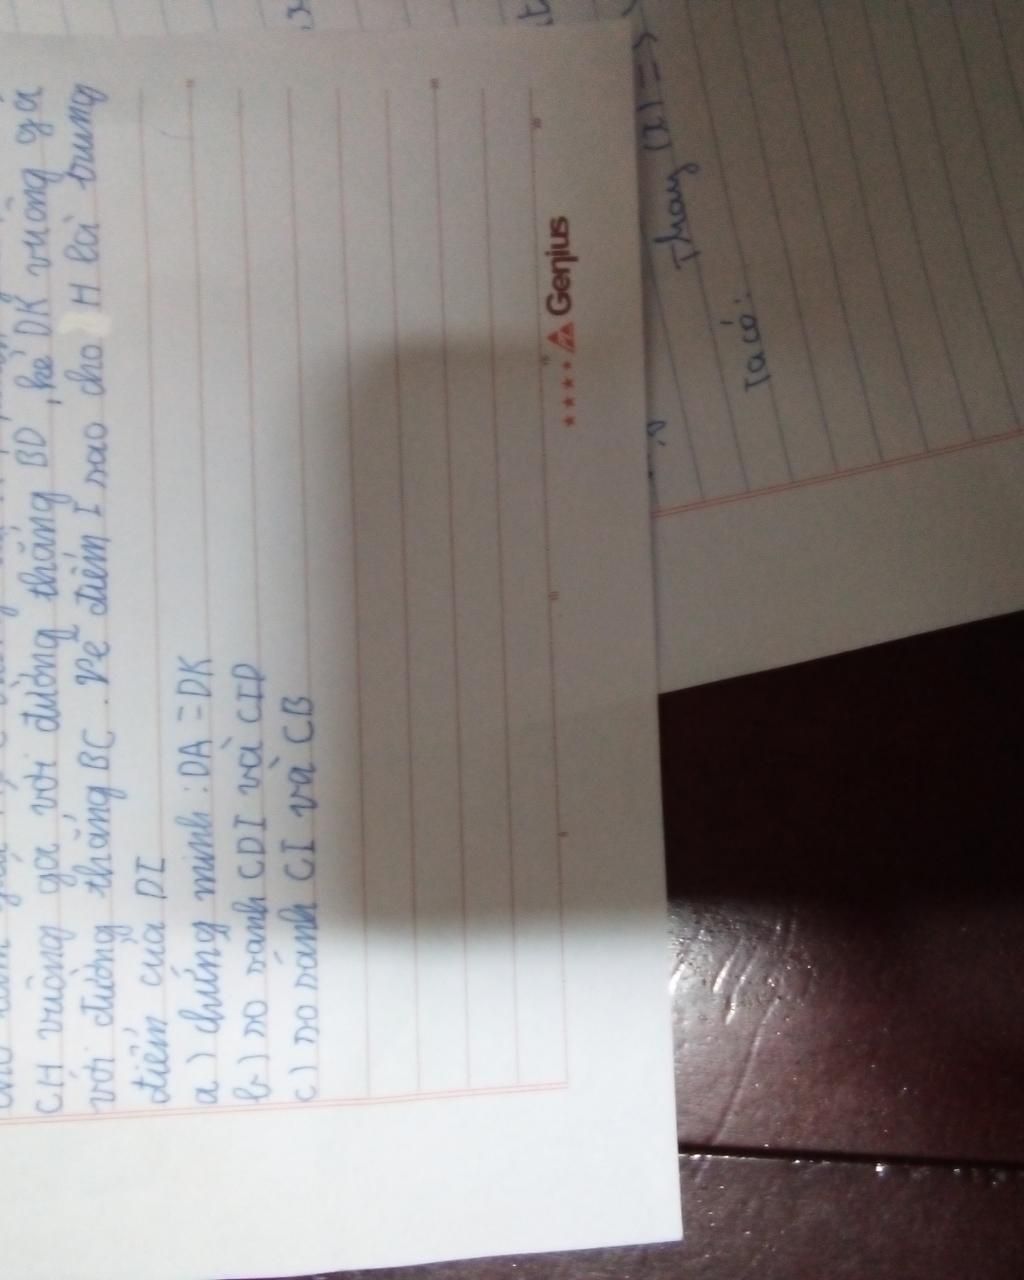 CH vuông gá với đường thẳng BD, kẻ DK vuông gá
với đường thẳng BC. Vẽ điểm I sao cho H là trung
điểm của DI
a) chứng minh: DA = DK
b) so sanh CDI và CID
c) so sánh CI và CB
Genjus
Thay (2) =>
Ta có: